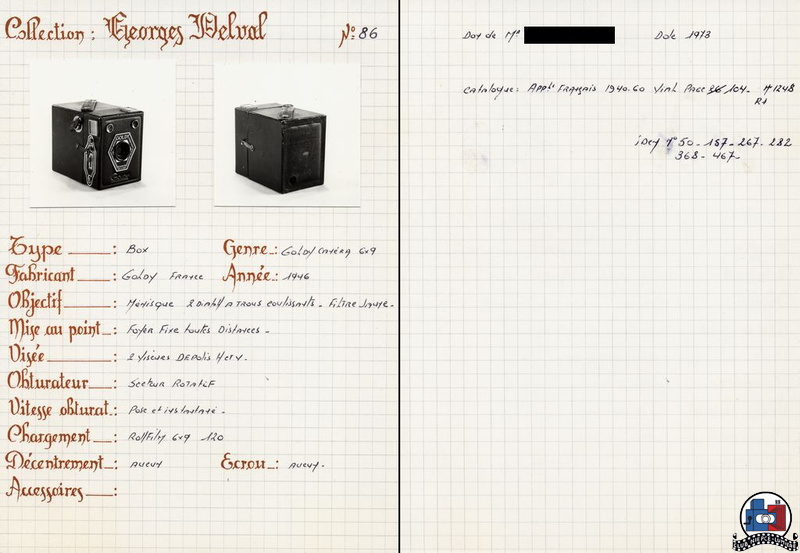 Collection : Georges Delval N° 86
Type : Box Genre : Goldy Caméra 6x9
Fabricant : Goldy France Année : 1946
Objectif : Ménisque 2 Diaph A Trous coulissants - Filtre Jaune -
Mise au point : Foyer Fixe toutes Distances -
Visée : 2 Viseurs DEPolis
Obturateur : Secteur Rotatif
Vitesse obturat. : Pose et instantané -
Chargement : Rollfilm 6x9 120
Décentrement : aucun Ecrou : aucun -
Accessoires :
Don de Mr Date 1973
Catalogue : Français 1940.60 Vial Page 104 - N° 1248
R1
idem N° 50 - 187 - 267 - 282
368 - 467 -
GOLDY